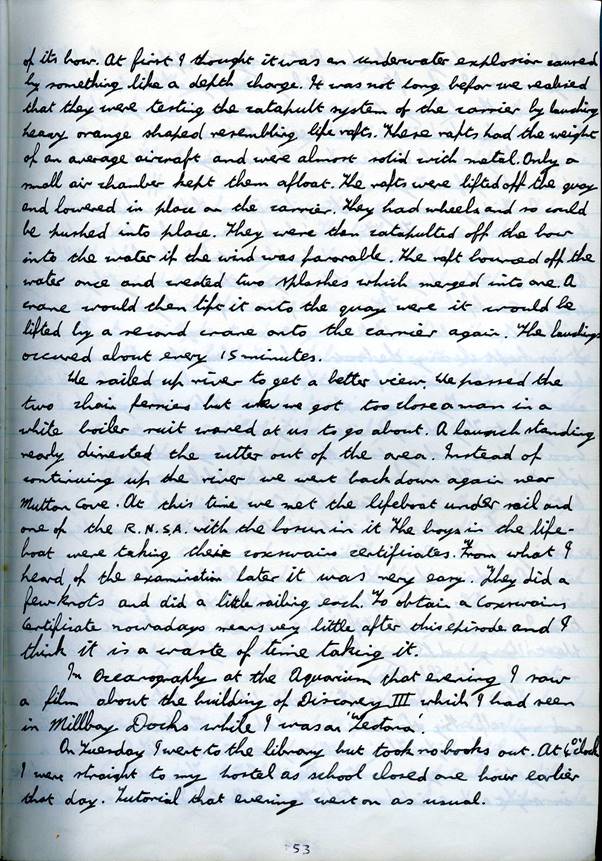 of its bow. At first I thought it was an underwater explosion caused
by something like a depth charge. It was not long befor we realised
that they were testing the catapult system of the carrier by lauching
heavy orange shaped resembling life rafts. These rafts had the weight
of an average aircraft and were almost solid with metal. Only a
small air chamber kept them afloat. The rafts were lifted off the quay
end lowered in place on the carrier. They had wheels and so could
be pushed into place. They were then catapulted off the bow
into the water if the wind was favorable. The raft bounced off the
water once and created two splashes which merged into one. A
crane would then lift it onto the quay were it would be
lifted by a second crane onto the carrier again. The lauchings
occured about every 15 minutes.
We sailed up river to get a better view. We passed the
two chain ferries but when we got too close a man in a
white boiler suit waved at us to go about. A launch standing
ready directed the cutter out of the area. Instead of
continuing up the river we went back down again near
Mutton Cove. At this time we met the lifeboat under sail and
one of the R.N.S.A. with the bosun in it. The boys in the life-
boat were taking their coxswains certificates. From what I
heard of the examination later it was very easy. They did a
few knots and did a little sailing each. To obtain a Coxswains
Certificate nowadays means very little after this episode and I
think it is a waste of time taking it.
In Oceanography at the Aquarium that evening I saw
a film about the building of Discovery III which I had seen
in Millbay Docks while I was on 'Zestora'.
On Tuesday I went to the library but took no books out. At 4 o'clock
I went straight to my hostel as school closed one hour earlier
that day. Tutorial that evening went on as usual.
53